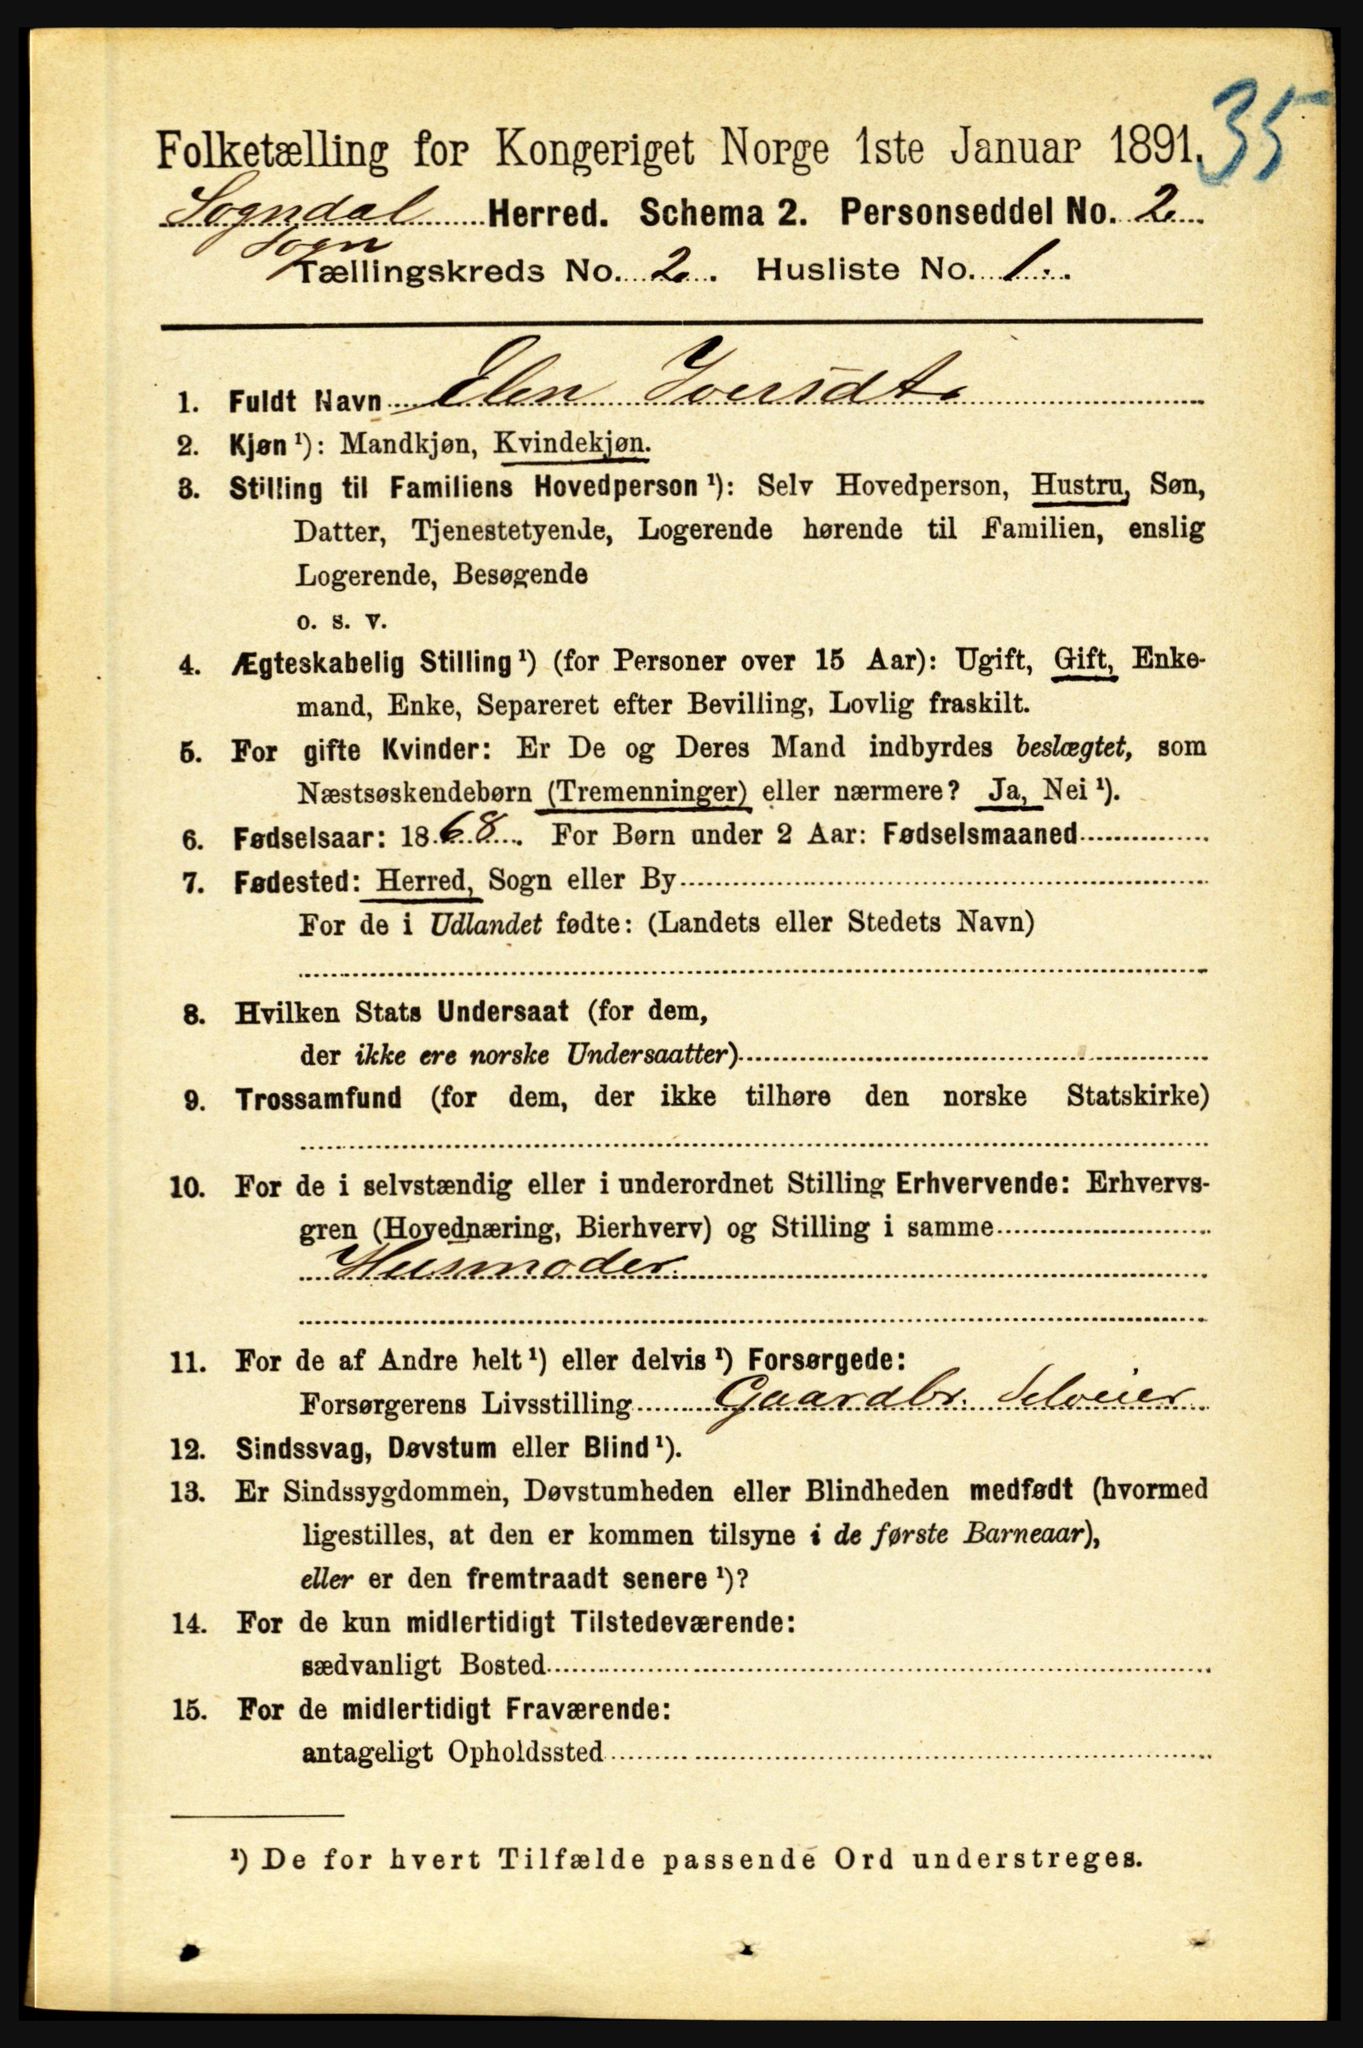 35
Folketælling for Kongeriget Norge 1ste Januar 1891.
Sogndal Herred. Schema 2. Personseddel No. 2.
Sogn
Tællingskreds No. 2. Husliste No. 1.
1. Fuldt Navn Elen Iversdt.
2. Kjøn ¹): Mandkjøn, Kvindekjøn.
3. Stilling til Familiens Hovedperson ¹): Selv Hovedperson, Hustru, Søn,
Datter, Tjenestetyende, Logerende hørende til Familien, enslig
Logerende, Besøgende
o. s. v.
4. Ægteskabelig Stilling ¹) (for Personer over 15 Aar): Ugift, Gift, Enke-
mand, Enke, Separeret efter Bevilling, Lovlig fraskilt.
5. For gifte Kvinder: Er De og Deres Mand indbyrdes beslægtet, som
Næstsøskendebørn (Tremenninger) eller nærmere? Ja, Nei ¹).
6. Fødselsaar: 1868. For Børn under 2 Aar: Fødselsmaaned
7. Fødested: Herred, Sogn eller By
For de i Udlandet fødte: (Landets eller Stedets Navn)
8. Hvilken Stats Undersaat (for dem,
der ikke ere norske Undersaatter)
9. Trossamfund (for dem, der ikke tilhøre den norske Statskirke)
10. For de i selvstændig eller i underordnet Stilling Erhvervende: Erhvervs-
gren (Hovednæring, Bierhverv) og Stilling i samme
Husmoder.
11. For de af Andre helt ¹) eller delvis ¹) Forsørgede:
Forsørgerens Livsstilling Gaardbr. Selveier
12. Sindssvag, Døvstum eller Blind ¹).
13. Er Sindssygdommen, Døvstumheden eller Blindheden medfødt (hvormed
ligestilles, at den er kommen tilsyne i de første Barneaar),
eller er den fremtraadt senere ¹)?
14. For de kun midlertidigt Tilstedeværende:
sædvanligt Bosted
15. For de midlertidigt Fraværende:
antageligt Opholdssted
¹) De for hvert Tilfælde passende Ord understreges.